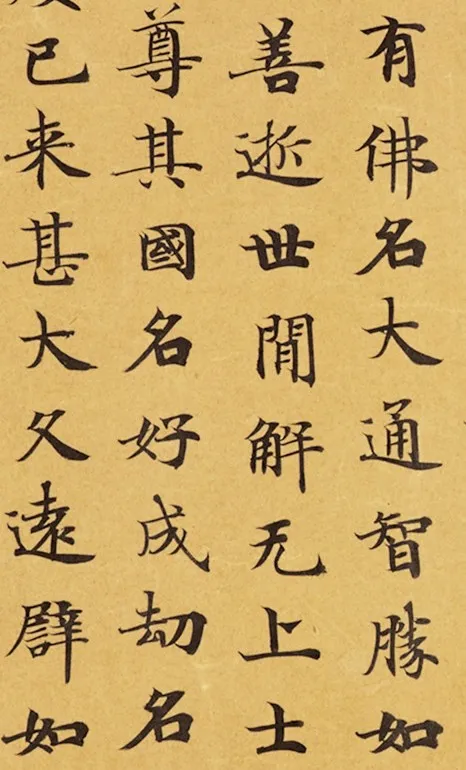 有佛名大通智勝如
善逝世閒解无上士
尊其國名好成劫名
已来甚大久遠譬如